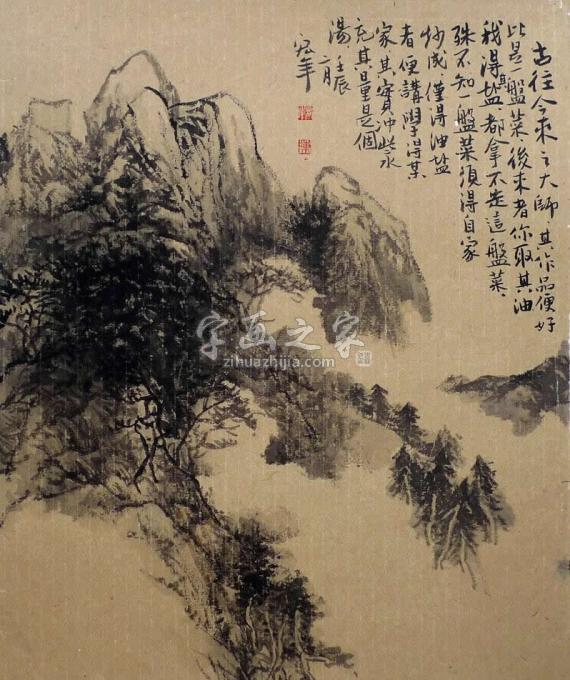 古往今來之大師其作品便好
比是一盤菜後來者你取其油
我得其鹽都拿不走這盤菜
殊不知一盤菜須得自家
炒成僅得油鹽
者便講學得某
家其實冲些水
充其量是個
湯壬辰
二月
宏年
字画之家
zihuazhijia.com